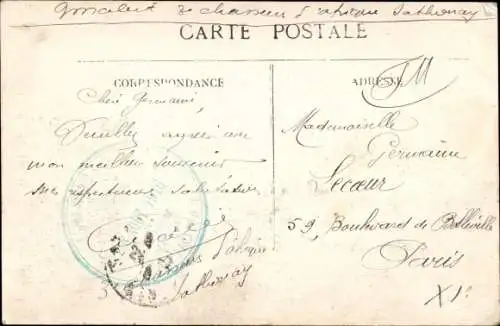 de chasseur d'afrique Sathonay
CARTE POSTALE
CORRESPONDANCE
ADRESSE
FM
Chère Germaine,
Veuillez agréer avec
mon meilleur souvenir
mes respectueuses salutations
chasseurs d'afrique
Sathonay
Mademoiselle
Germaine
Lecoeur
59, Boulevard de Belleville
Paris